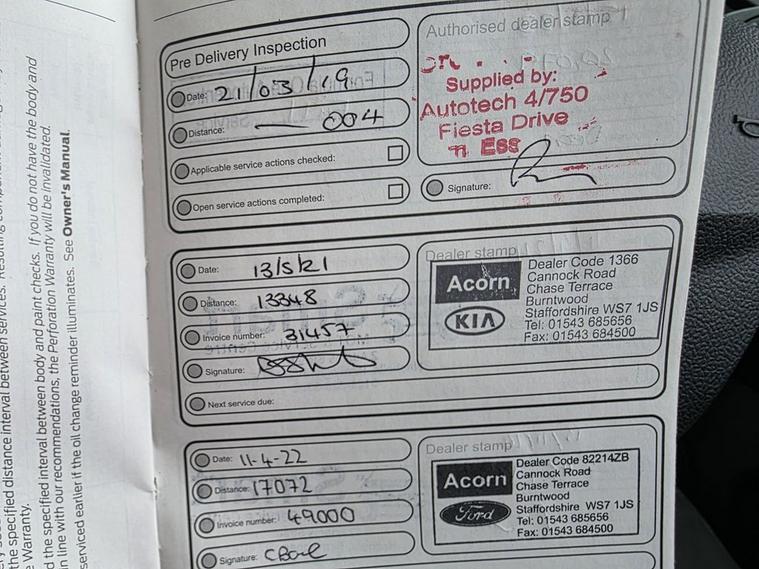 the specified distance interval between services.
Warranty.
d the specified interval between body and paint checks. If you do not have the body and
in line with our recommendations, the Perforation Warranty will be invalidated.
serviced earlier if the oil change reminder illuminates. See Owner's Manual.
Pre Delivery Inspection
Date: 21/03/19
Distance: — 004
Applicable service actions checked:
Open service actions completed:
Authorised dealer stamp
Supplied by:
Autotech 4/750
Fiesta Drive
Ess
Signature:
Date: 13/5/21
Distance: 13348
Invoice number: 31457
Signature:
Next service due:
Dealer stamp
Acorn
KIA
Dealer Code 1366
Cannock Road
Chase Terrace
Burntwood
Staffordshire WS7 1JS
Tel: 01543 685656
Fax: 01543 684500
Date: 11-4-22
Distance: 17072
Invoice number: 49000
Signature:
Dealer stamp
Acorn
Ford
Dealer Code 82214ZB
Cannock Road
Chase Terrace
Burntwood
Staffordshire WS7 1JS
Tel: 01543 685656
Fax: 01543 684500